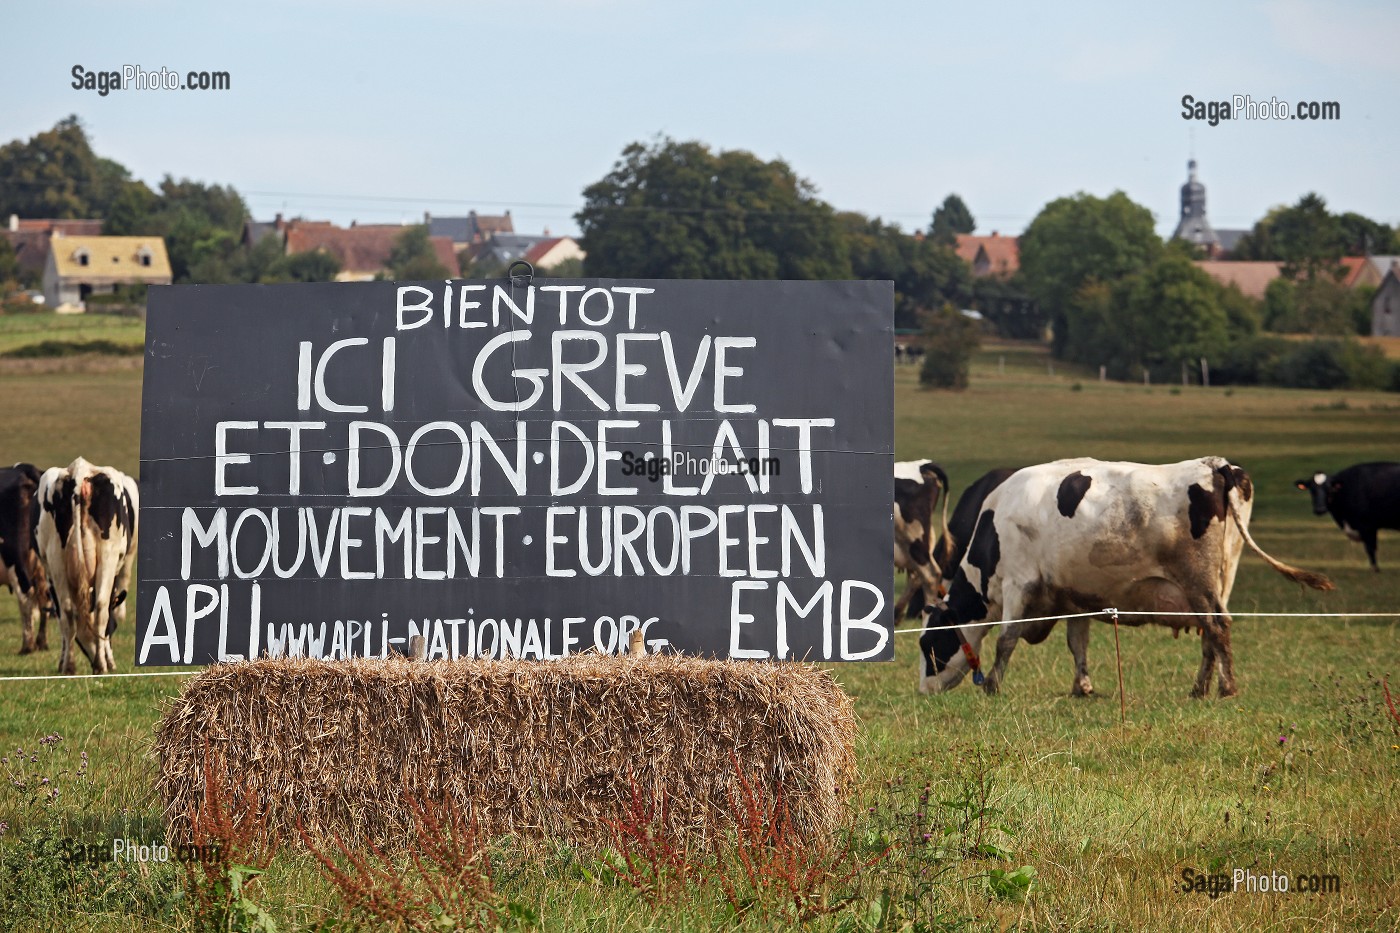 SagaPhoto.com
SagaPhoto.com
BIENTOT
ICI GREVE
ET·DON·DE·LAIT
SagaPhoto.com
MOUVEMENT·EUROPEEN
APLI WWW.APLI-NATIONALE.ORG EMB
SagaPhoto.com
SagaPhoto.com